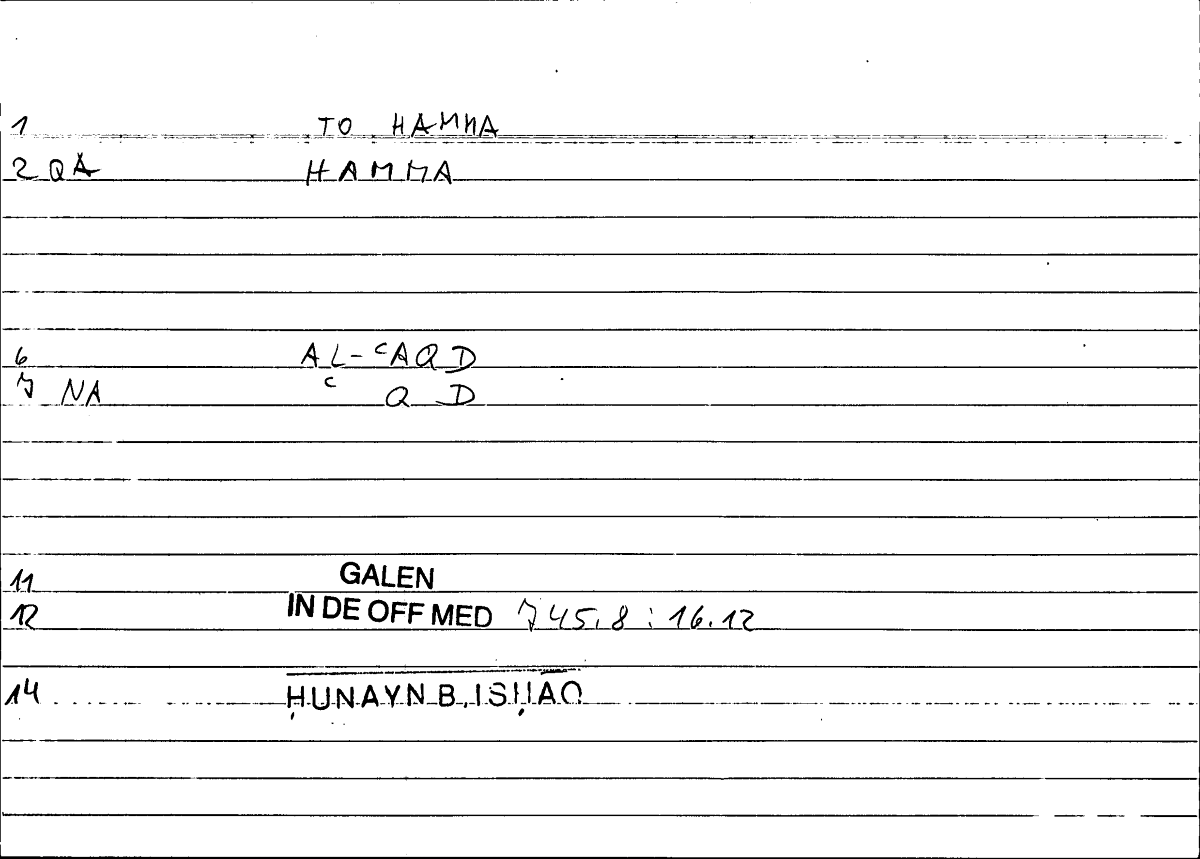 1 TO HAMMA
2 QA HAMMA
6 AL-ʿAQD
7 NA ʿ Q D
11 GALEN
12 IN DE OFF MED 745.8 : 16.12
14 ḤUNAYN B. ISḤAQ